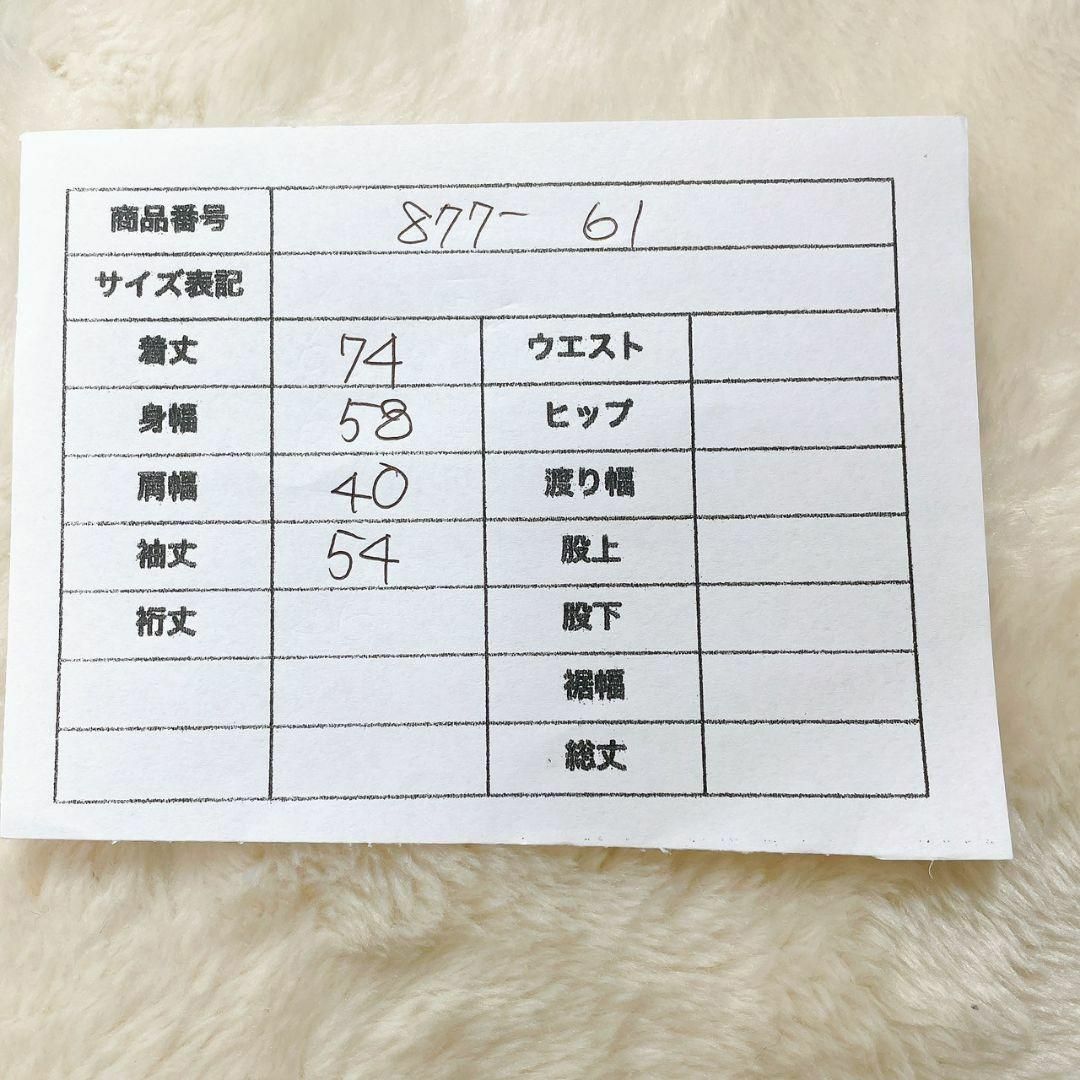 商品番号 877- 61
サイズ表記
着丈 74 ウエスト
身幅 58 ヒップ
肩幅 40 渡り幅
袖丈 54 股上
裄丈 股下
裾幅
総丈